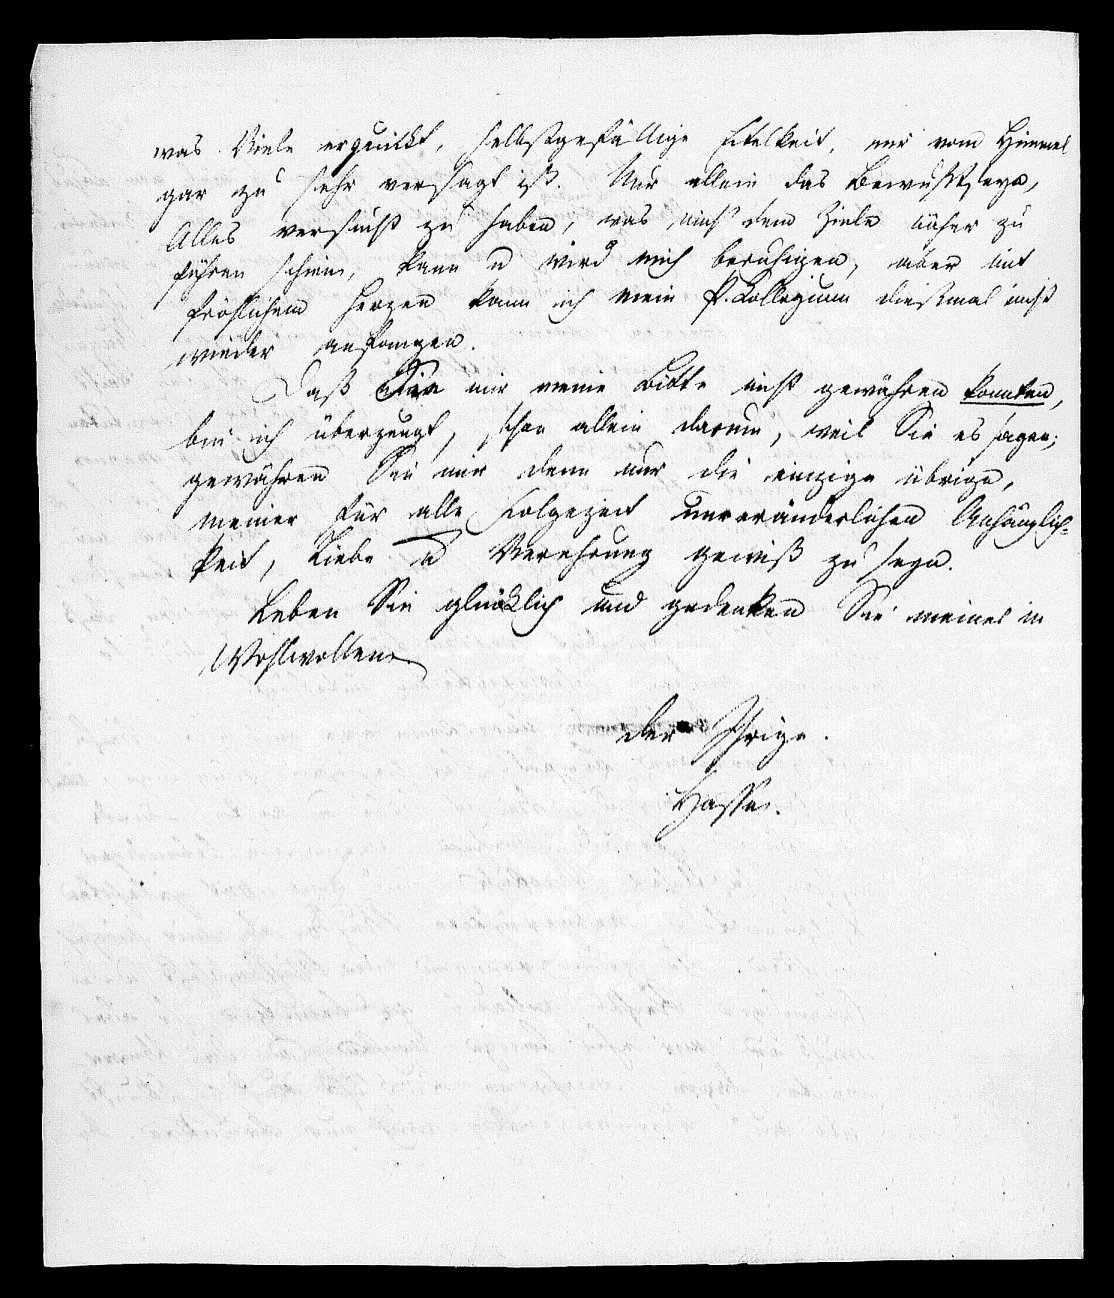 was Viele erquickt, selbstgefällige Eitelkeit, mir vom Himmel
gar zu sehr versagt ist. Nur allein das Bewußtseyn,
Alles versucht zu haben, was mich dem Ziele näher zu
führen schien, kann u wird mich beruhigen, aber mit
fröhlichem Herzen kann ich mein P. Collegium dießmal nicht
wieder anfangen.
Daß Sie mir meine Bitte nicht gewähren konnten,
bin ich überzeugt, schon allein darum, weil Sie es sagen;
gewähren Sie mir denn nur die einzige übrige,
meiner für alle Folgezeit unveränderlichen Anhänglich-
keit, Liebe u Verehrung gewiß zu seyn.
Leben Sie glücklich und gedenken Sie meines in
Wohlwollen
der Ihrige.
Hasse.